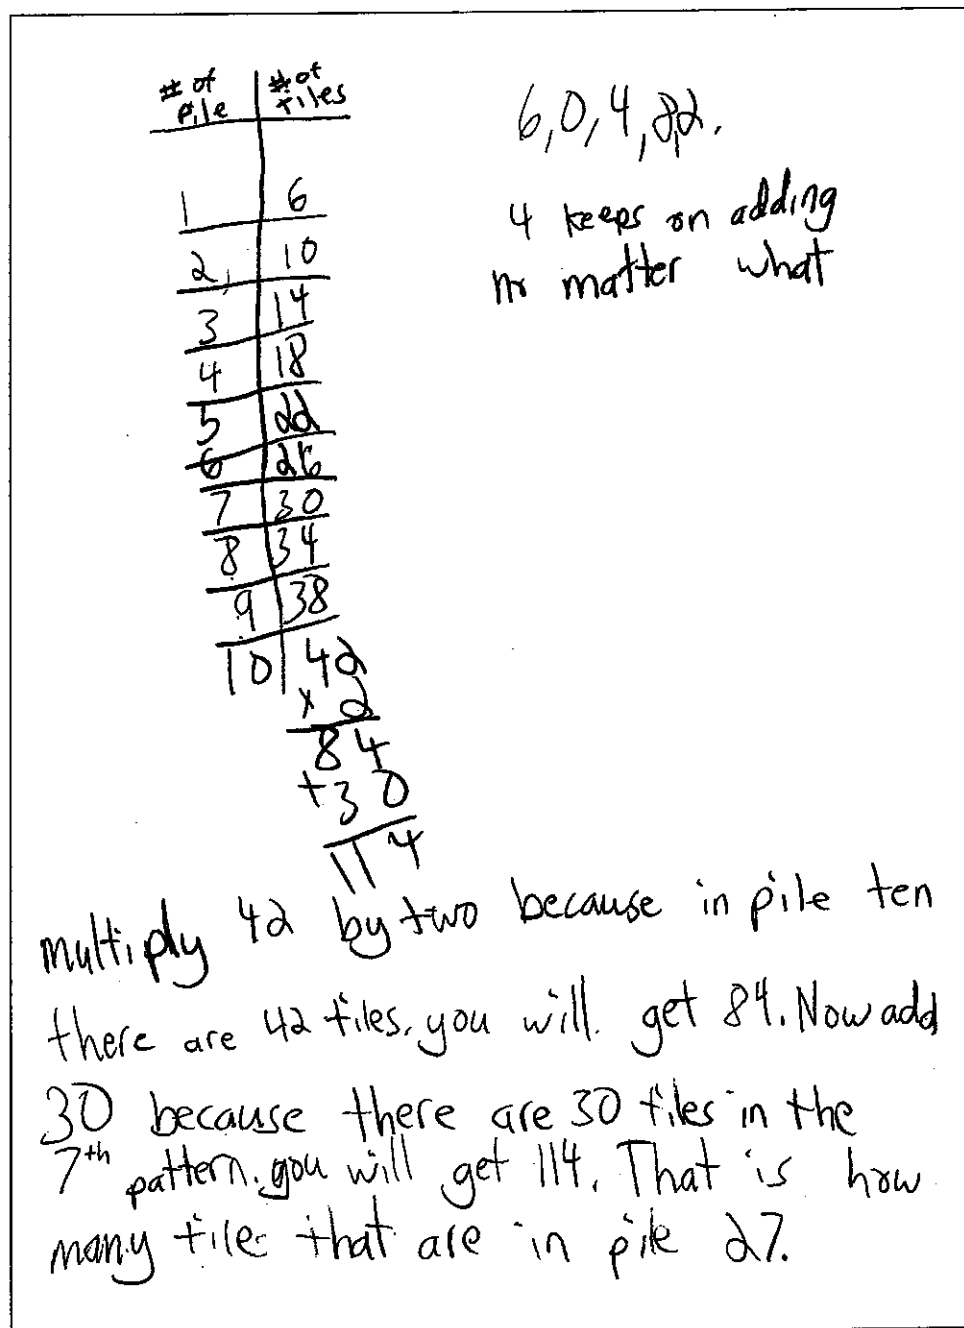 # of pile | # of tiles
1 | 6
2, | 10
3 | 14
4 | 18
5 | 22
6 | 26
7 | 30
8 | 34
9 | 38
10 | 42
x 2
84
+30
114
6, 0, 4, 8, 2.
4 keeps on adding
no matter what
multiply 42 by two because in pile ten
there are 42 tiles. you will get 84. Now add
30 because there are 30 tiles in the
7th pattern. you will get 114. That is how
many tiles that are in pile 27.